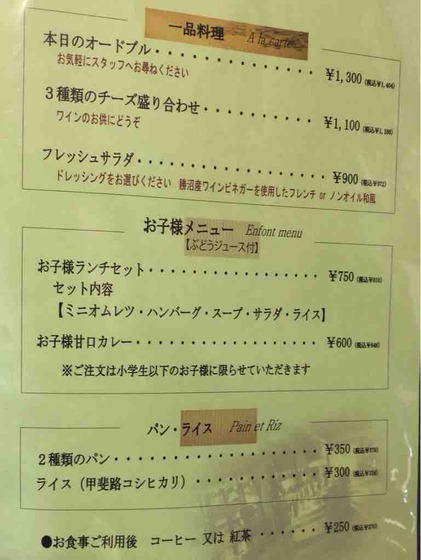 一品料理 A la carte
本日のオードブル・・・・・・・・・・・・・・¥1,300(税込¥1,404)
お気軽にスタッフへお尋ねください
3種類のチーズ盛り合わせ・・・・・・・・・・¥1,100(税込¥1,188)
ワインのお供にどうぞ
フレッシュサラダ・・・・・・・・・・・・・・¥900(税込¥972)
ドレッシングをお選びください 勝沼産ワインビネガーを使用したフレンチ or ノンオイル和風
お子様メニュー Enfont menu
【ぶどうジュース付】
お子様ランチセット・・・・・・・・・・・・・¥750(税込¥810)
セット内容
【ミニオムレツ・ハンバーグ・スープ・サラダ・ライス】
お子様甘口カレー・・・・・・・・・・・・・・¥600(税込¥648)
※ご注文は小学生以下のお子様に限らせていただきます
パン・ライス Pain et Riz
2種類のパン・・・・・・・・・・・・・・・・¥350(税込¥378)
ライス(甲斐路コシヒカリ)・・・・・・・・・¥300(税込¥324)
●お食事ご利用後 コーヒー 又は 紅茶・・・・・・・¥250(税込¥270)